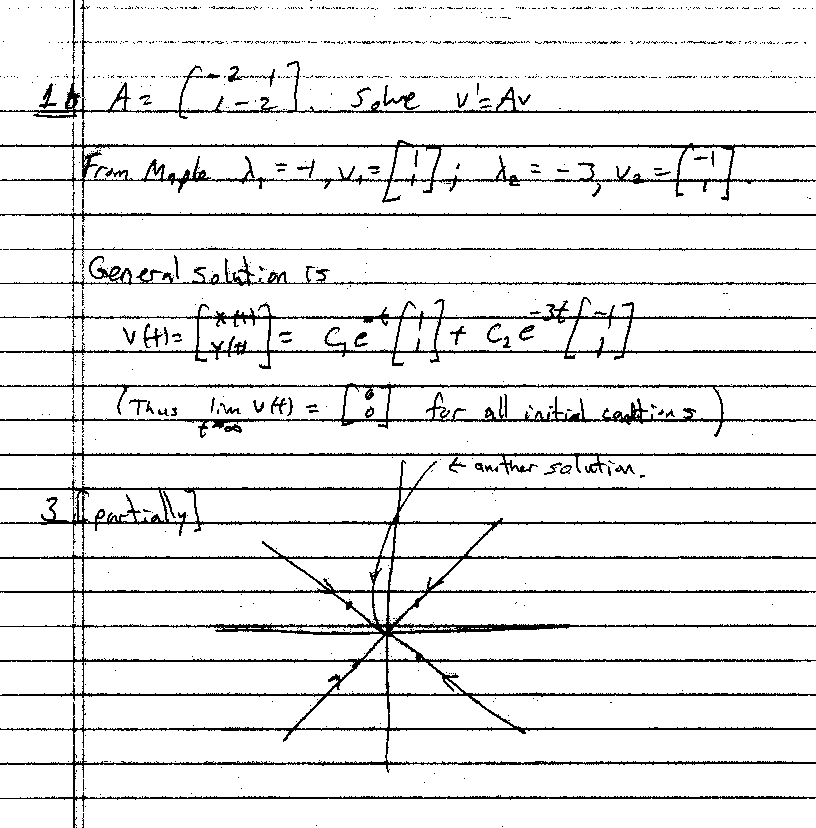 1b A = [-2 1
1 -2]. Solve v' = Av
From Maple λ₁ = -1, v₁ = [1
1]; λ₂ = -3, v₂ = [-1
1].
General solution is
v(t) = [x(t)
y(t)] = C₁e^-t [1
1] + C₂e^-3t [-1
1]
(Thus lim t→∞ v(t) = [0
0] for all initial condtions.)
← another solution.
3 [partially]